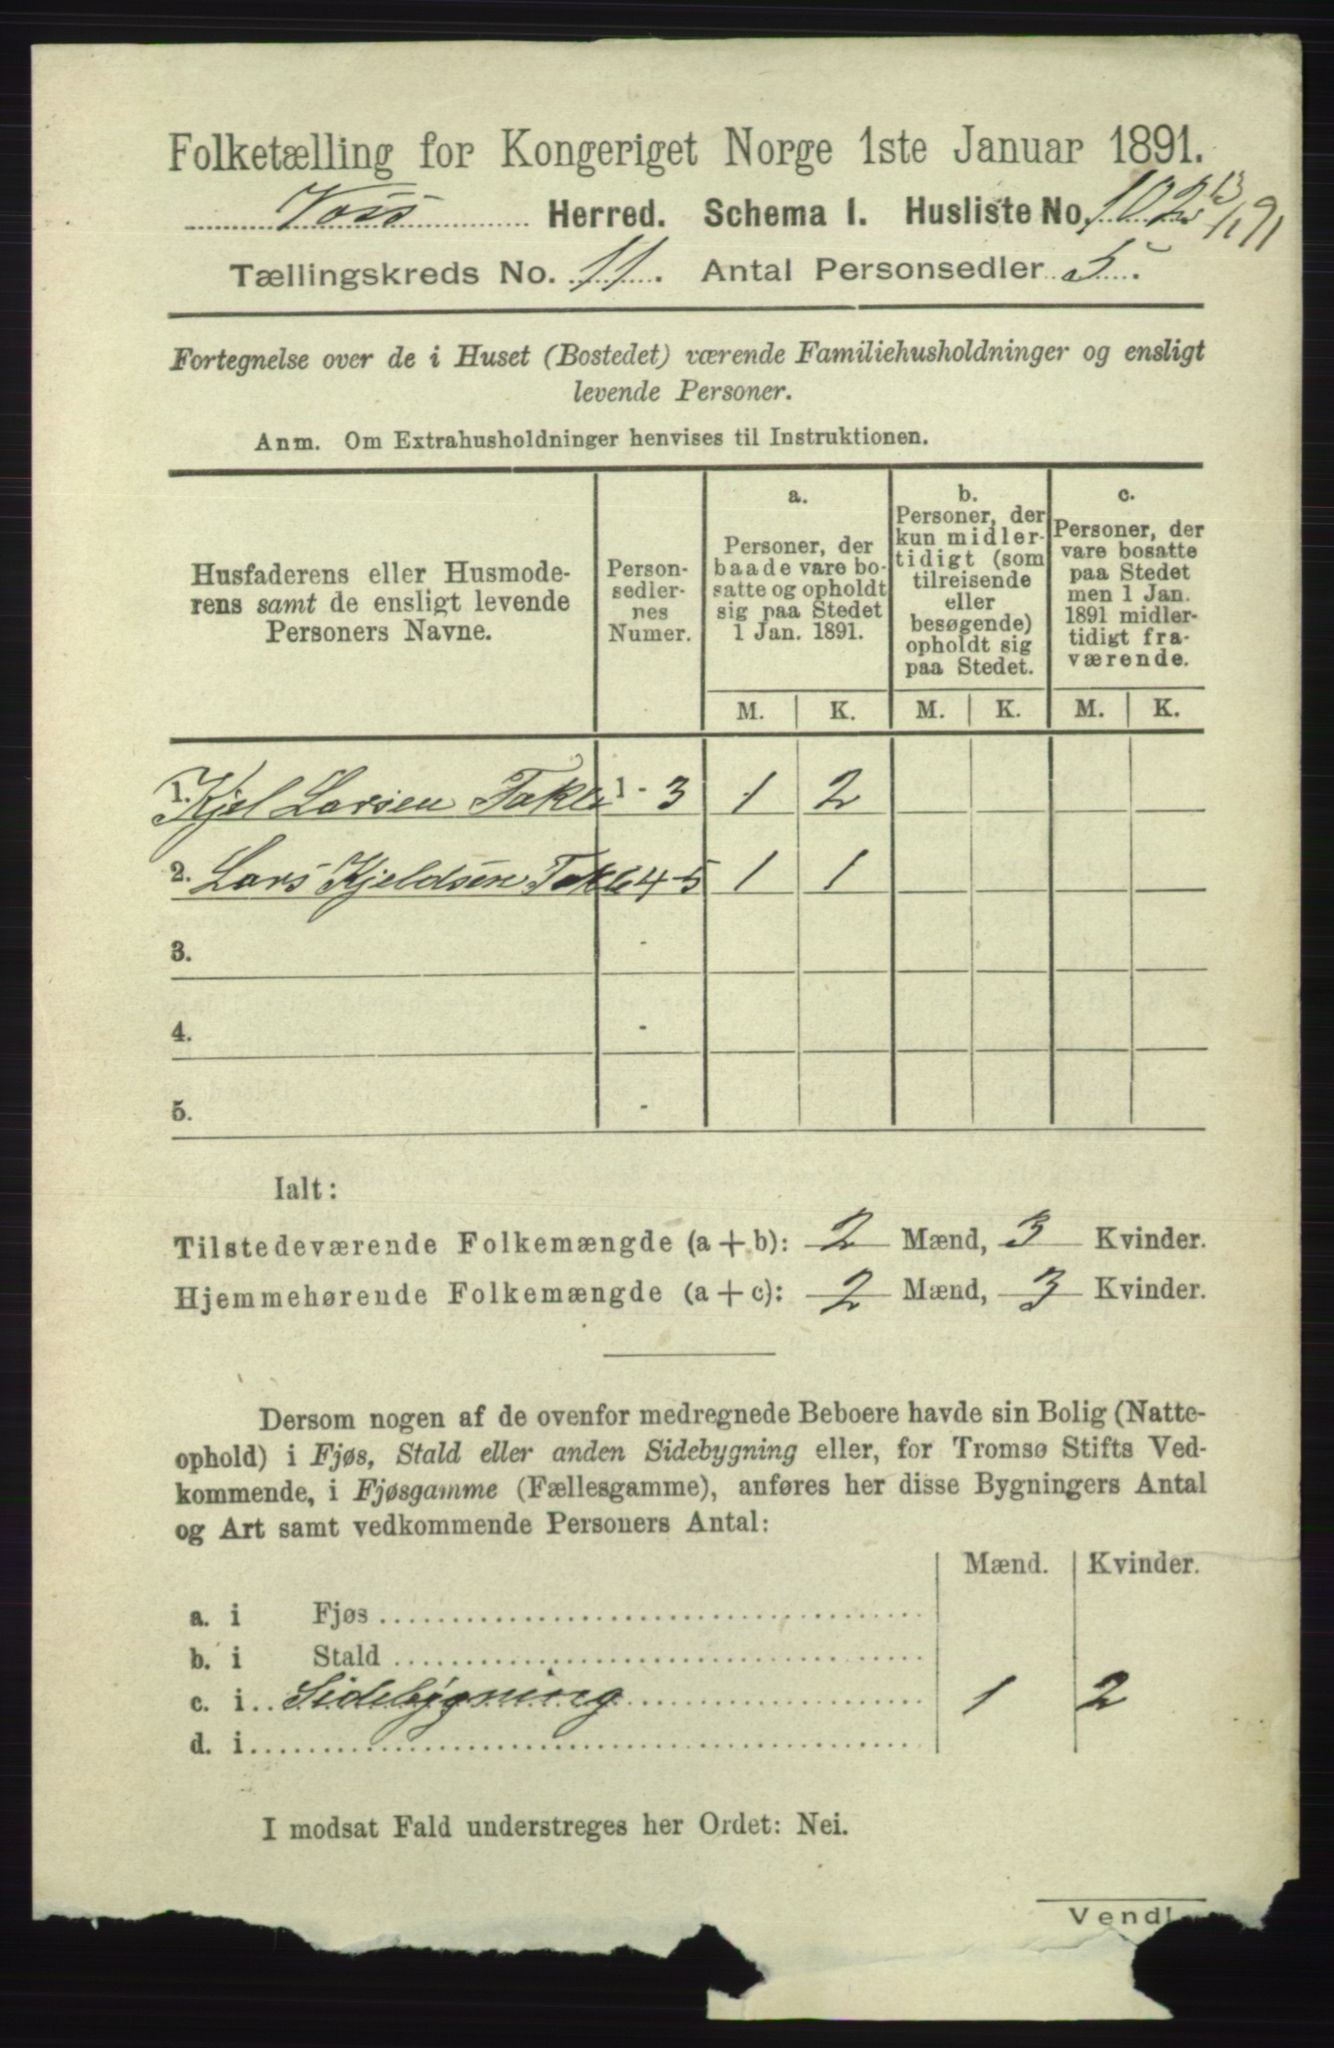 Folketælling for Kongeriget Norge 1ste Januar 1891.
Voss Herred. Schema I. Husliste No. 102 13/1 91
Tællingskreds No. 11. Antal Personsedler 5.
Fortegnelse over de i Huset (Bostedet) værende Familiehusholdninger og ensligt
levende Personer.
Anm. Om Extrahusholdninger henvises til Instruktionen.
Husfaderens eller Husmode-
rens samt de ensligt levende
Personers Navne.
Person-
sedler-
nes
Numer.
a.
Personer, der
baade vare bo-
satte og opholdt
sig paa Stedet
1 Jan. 1891.
b.
Personer, der
kun midler-
tidigt (som
tilreisende
eller
besøgende)
opholdt sig
paa Stedet.
c.
Personer, der
vare bosatte
paa Stedet
men 1 Jan.
1891 midler-
tidigt fra-
værende.
M. K. M. K. M. K.
1. Kjel Larsen Takle 1 - 3 1 2
2. Lars Kjeldsen Takle 4-5 1 1
3. -
4. -
5. -
Ialt:
Tilstedeværende Folkemængde (a+b): 2 Mænd, 3 Kvinder.
Hjemmehørende Folkemængde (a+c): 2 Mænd, 3 Kvinder.
Dersom nogen af de ovenfor medregnede Beboere havde sin Bolig (Natte-
ophold) i Fjøs, Stald eller anden Sidebygning eller, for Tromsø Stifts Ved-
kommende, i Fjøsgamme (Fællesgamme), anføres her disse Bygningers Antal
og Art samt vedkommende Personers Antal:
Mænd. Kvinder.
a. i Fjøs
b. i Stald
c. i Sidebygning 1 2
d. i
I modsat Fald understreges her Ordet: Nei.
Vend!